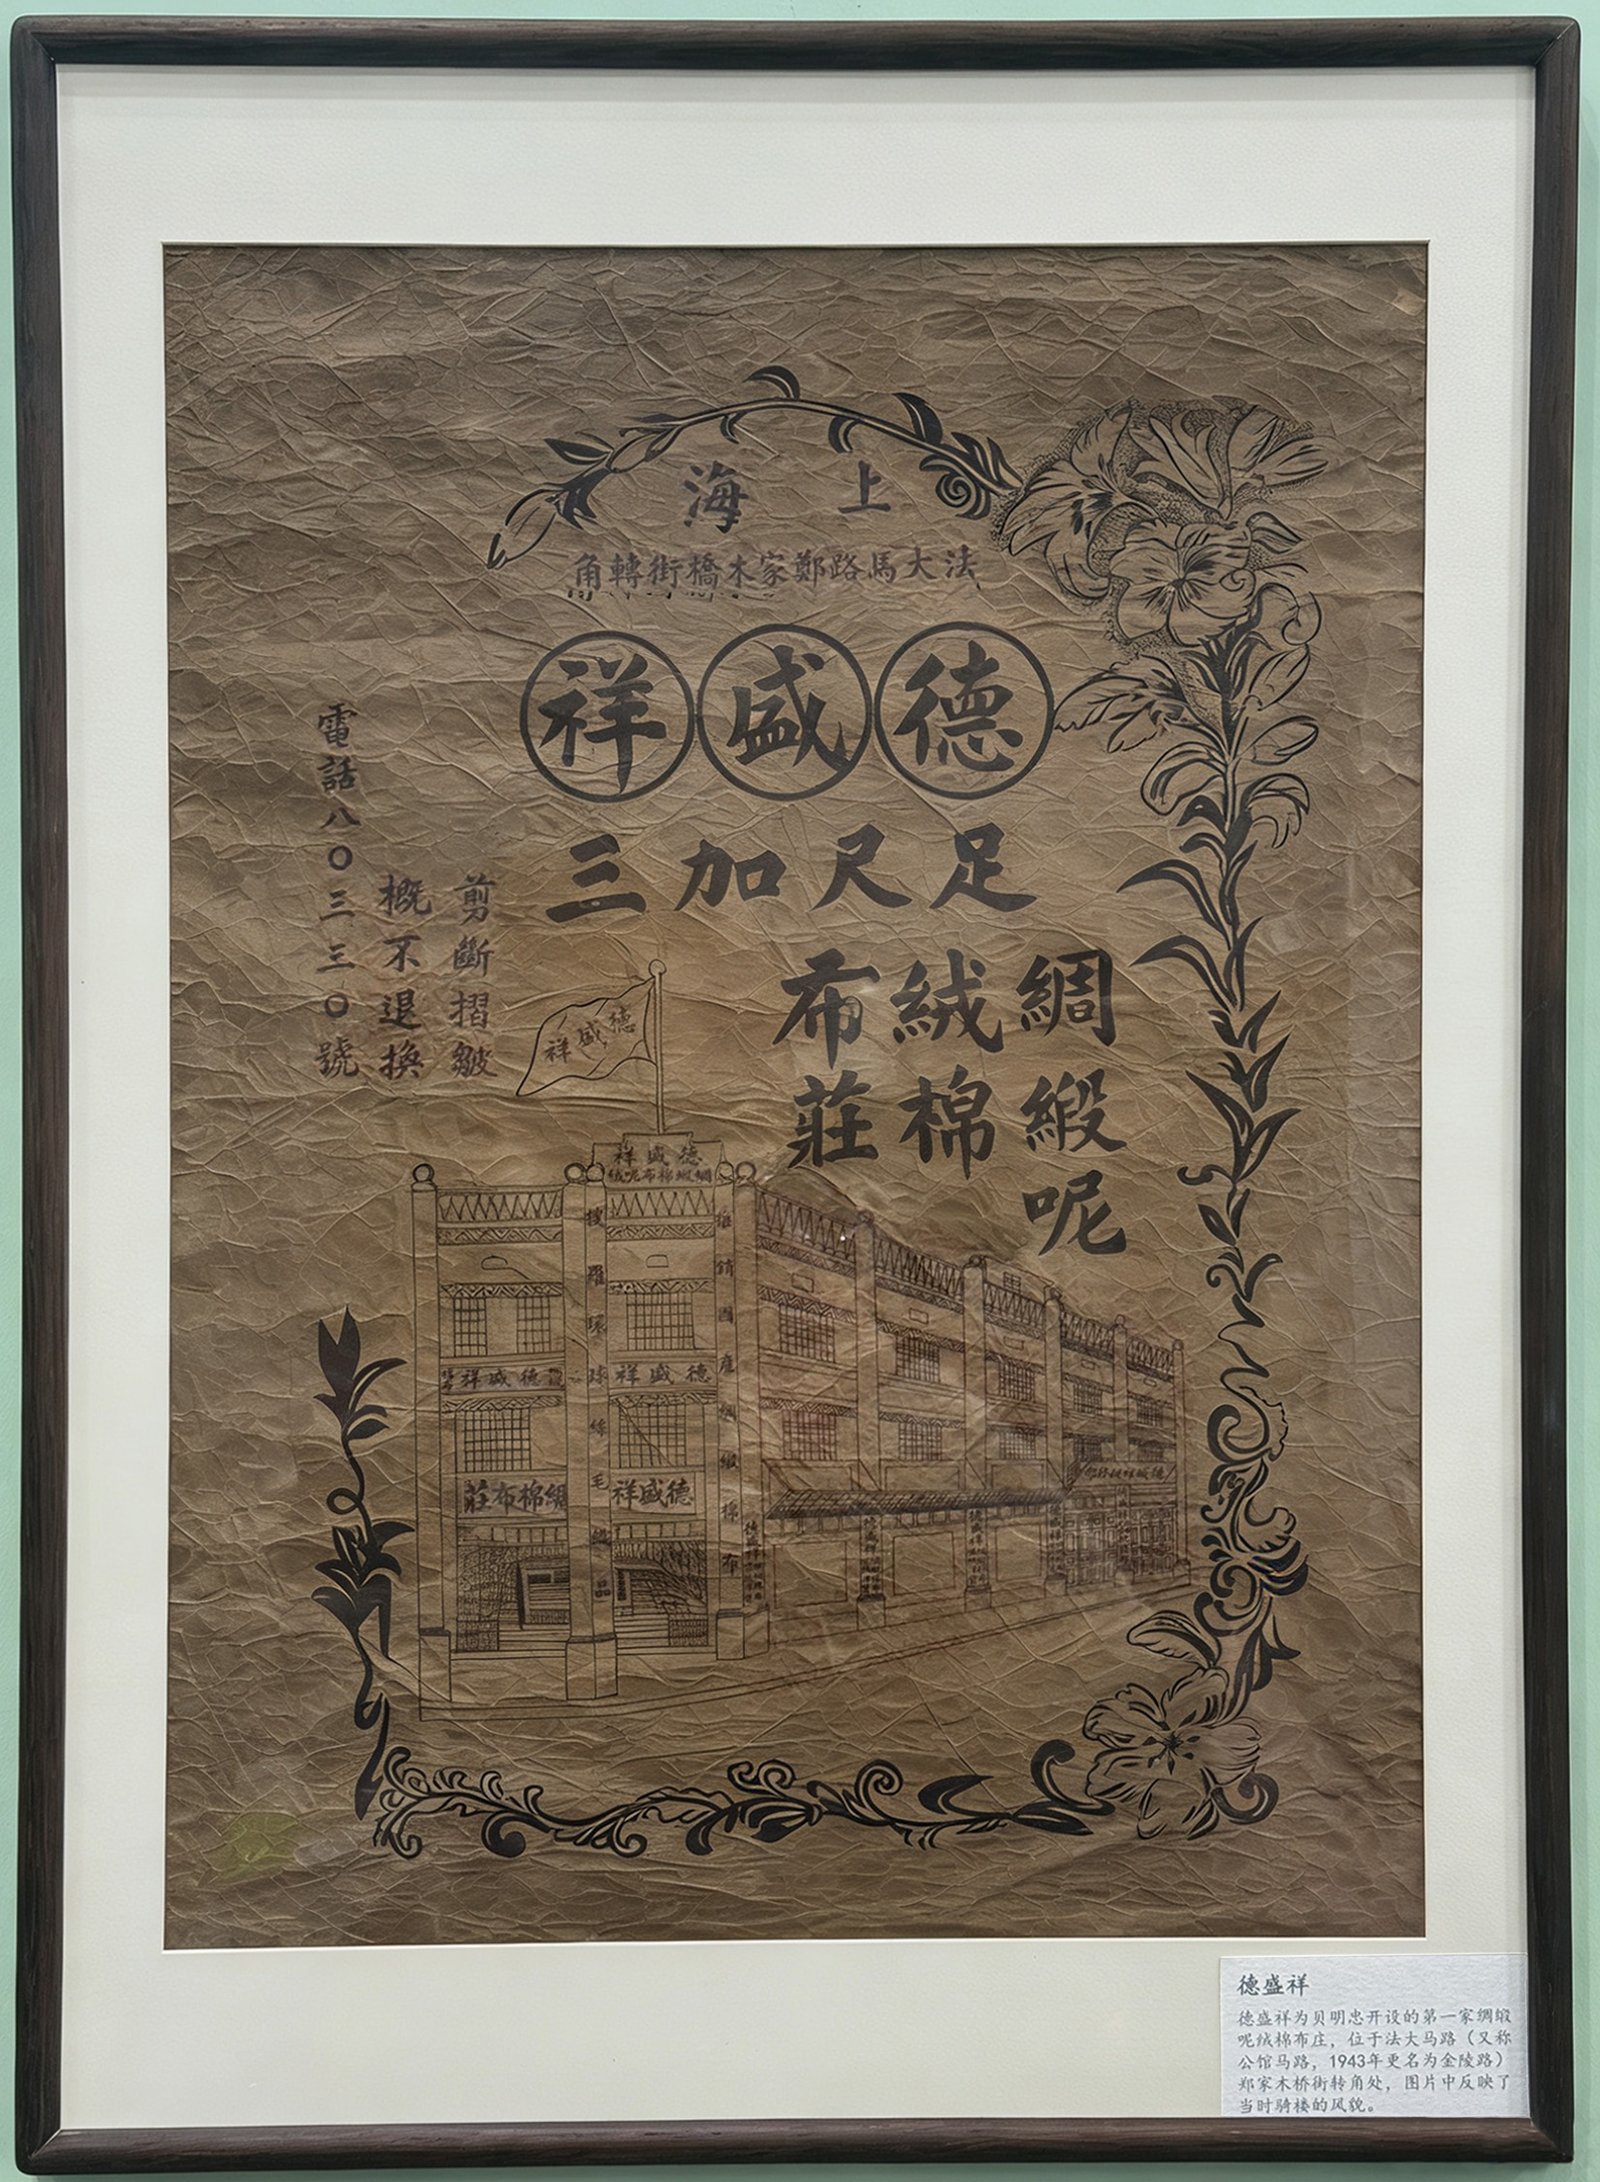 上海
法大馬路鄭家木橋街轉角
德盛祥
足尺加三
綢緞呢
絨棉
布莊
剪斷摺皺
概不退換
電話八〇三三〇號
德盛祥
德盛祥
綢緞棉布呢絨
搜羅環球絲毛織品
推銷國產綢緞棉布
德盛祥
德盛祥
綢棉布莊
德盛祥
德盛祥
德盛祥为贝明忠开设的第一家绸缎
呢绒棉布庄，位于法大马路（又称
公馆马路，1943年更名为金陵路）
郑家木桥街转角处，图片中反映了
当时骑楼的风貌。